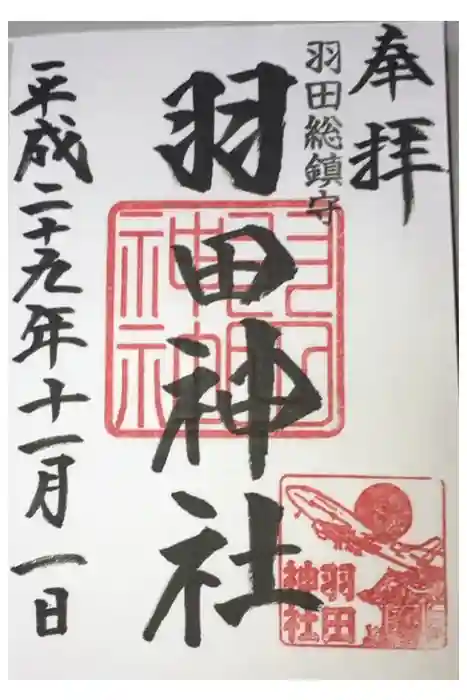 奉拝
羽田総鎮守
羽田神社
平成二十九年十一月一日
羽田神社
羽田
神社